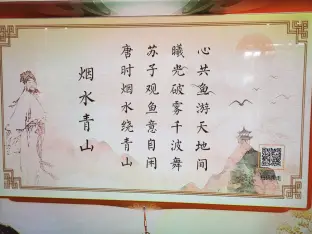 烟水青山
唐时烟水绕青山
苏子观鱼意自闲
曦光破雾千波舞
心共鱼游天地间